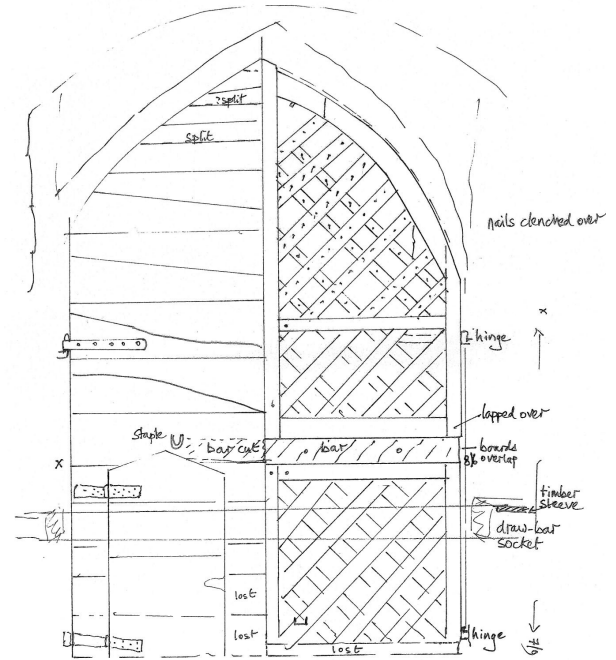 ?split
split
nails clenched over
x
hinge
lapped over
staple
bar cut
bar
boards
overlap
x
timber
sleeve
draw-bar
socket
lost
lost
hinge
lost